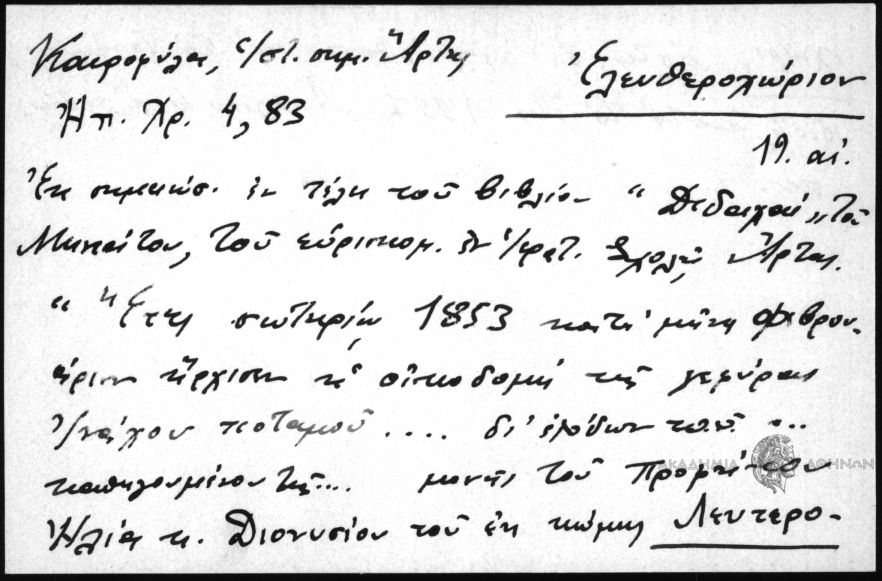 Καιροφύλα, ἐ/στ. σημ. Ἄρτης
Ἐλευθεροχώριον
Ἠπ. Χρ. 4, 83
19. αἰ.
Ἐκ σημειώσ. ἐν τέλει τοῦ βιβλίου " Διδαχαί „ τοῦ
Μηνιάτου, τοῦ εὑρισκομ. ἐν Σχολῇ Ἄρτης.
" Ἔτει σωτηρίῳ 1853 κατὰ μῆνα Φεβρου-
άριον ἤρχισεν ἡ οἰκοδομὴ τῆς γεφύρας
Ἰνάχου ποταμοῦ .... δι' ἐξόδων τοῦ ...
καθηγουμένου τῆς ... μονῆς τοῦ Προφήτου
ΑΚΑΔΗΜΙΑ ΑΘΗΝΩΝ
Ἠλία κ. Διονυσίου τοῦ ἐκ κώμης Λευτερο-